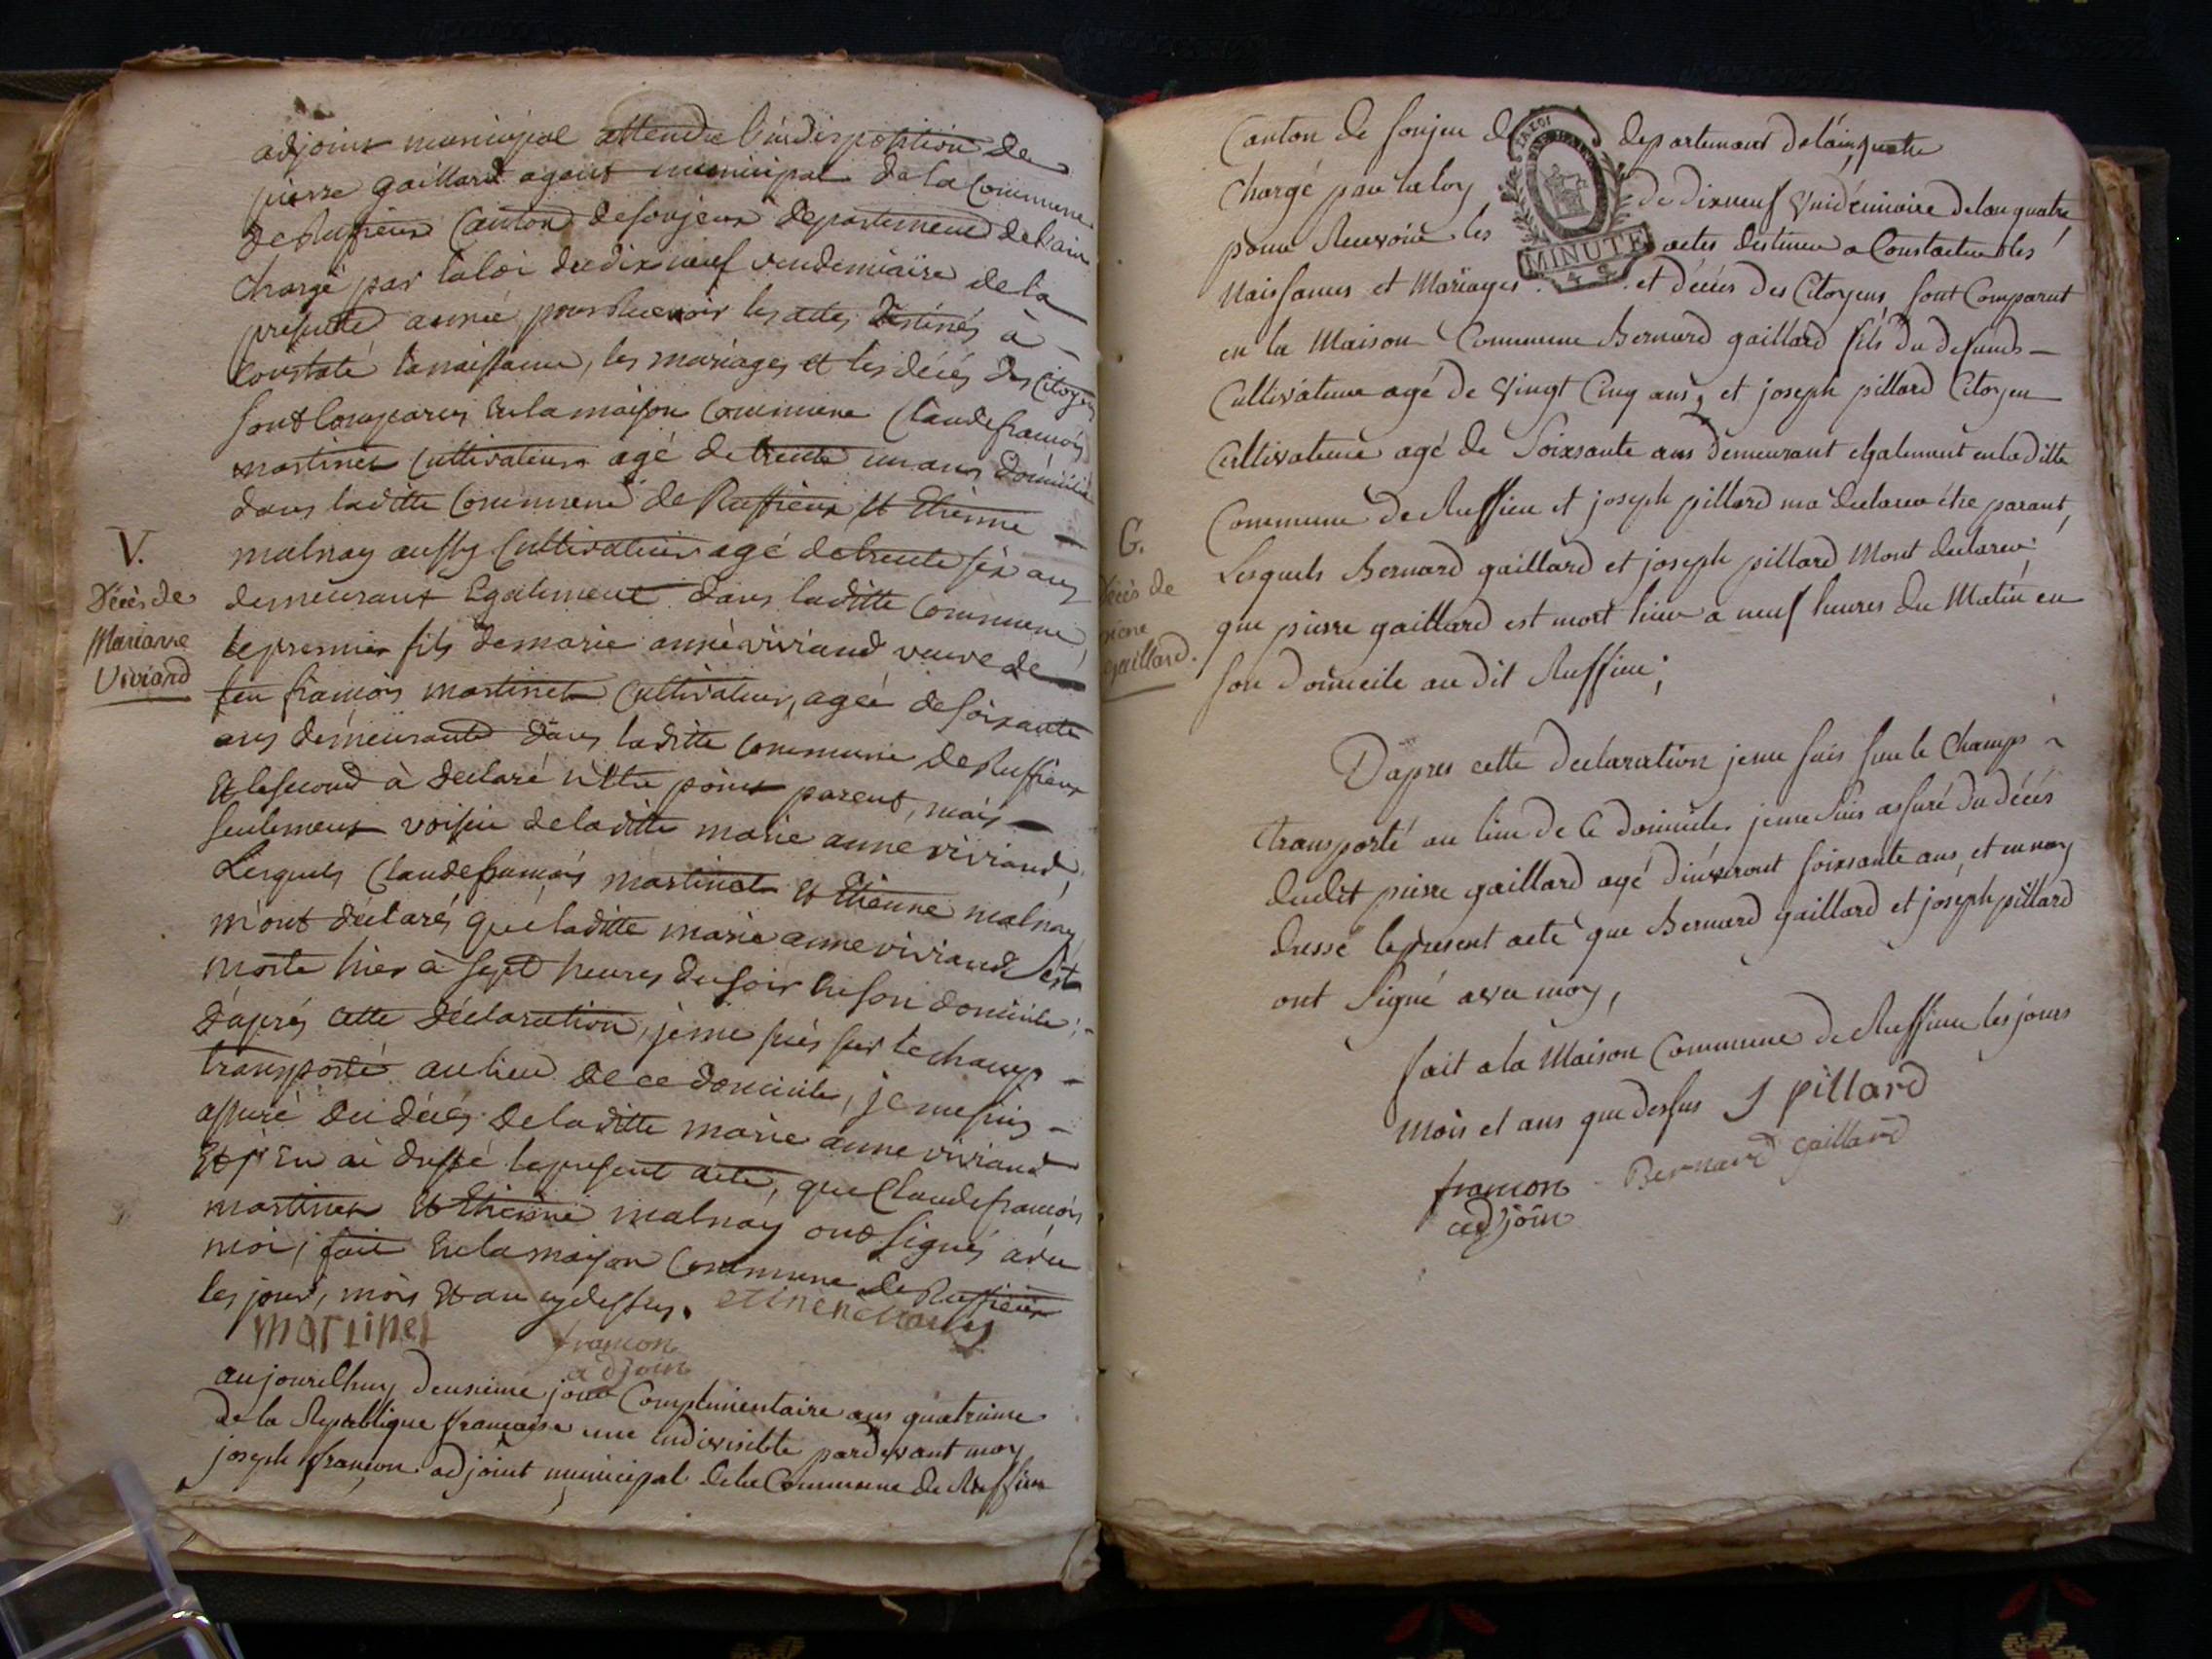 adjoint municipal attendu l'indisposition de
pierre gaillard agent municipal de la Commune
de Ruffieux Canton de Sonjeux departement de l'ain
chargé par la loi du dix neuf vendemiaire de la
presente année pour Recevoir les actes destinés à
constaté la naissance, les mariages et les décés des Citoyens
sont Comparus en la maison commune Claude françois
martinet Cultivateur agé de trente un ans domicilié
dans laditte Commune de Ruffieux et Etienne
malnay aussy Cultivateur agé de trente six ans
demeurant Egalement dans laditte Commune
V.
Décès de
Marianne
Viviand
le premier fils de marie anne viviand veuve de
feu françois martinet Cultivateur, agée de soixante
ans demeurante dans laditte commune de Ruffieux
Et le second à declaré n'être point parent, mais
seulement voisin de laditte marie anne viviand,
Lesquels Claude françois martinet et Etienne malnay
m'ont déclarés que laditte marie anne viviand est
morte hier à sept heures du soir en son domicile;
d'après cette déclaration, je me suis sur le champ
transporté au lieu de ce domicile, je me suis
assuré du décés de laditte marie anne viviand
Et j'En ai dressé le present acte, que Claude françois
martinet et Etienne malnay ont signés avec
moi, fait En la maison Commune de Ruffieux
les jour, mois Et an cy dessus.
martinet
francon
adjoin
aujourdhuy deuxieme jour Complimentaire ans quatrieme
de la Republique francaise une Indivisible pardevant moy
joseph francon adjoint municipal de la Commune de Ruffieu
Canton de Sonjeu departement de lain,
Chargé par la loy de dixneuf Vendémiaire de lan quatre
pour Recevoir les actes destinée a Constacter les
LA LOI
MINUTE
Naissances et Mariages et décès des Citoyens sont Comparut
en la Maison Commune Bernard gaillard fils du defunds
Cultivateur agé de Vingt Cinq ans, et joseph pillard Citoyen
Cultivateur agé de Soixsante ans demeurant egalement en la ditte
Commune de Ruffieu et joseph pillard ma declaree être parant,
G.
Décès de
pierre
gaillard.
Lesquels Bernard gaillard et joseph pillard Mont declaree
que pierre gaillard est mort hier a neuf heures du Matin en
son domicile au dit Ruffieu;
D'apres cette declaration je me suis sur le Champs
transporté au lieu de Ce domicile, je me suis assuré du décés
dudit pierre gaillard agé dinveront soixsante ans, et en nay
dressé le present acte que Bernard gaillard et joséph pillard
ont Signé avec moy,
fait a la Maison Commune de Ruffieu les jours
Mois et ans que dessus J pillard
francon Bernard gaillard
adjoin